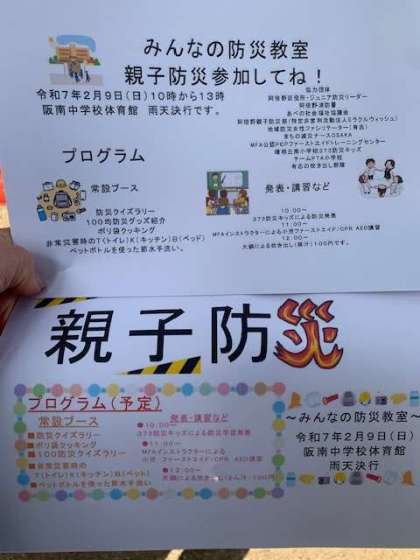 みんなの防災教室
親子防災参加してね！
令和7年2月9日(日)10時から13時
阪南中学校体育館　雨天決行です。
協力団体
阿倍野区役所・ジュニア防災リーダー
阿倍野消防署
あべの社会福祉協議会
地域防災女性ファシリテーター(有志)
まちの減災ナースOSAKA
チームPTA小学校
有志の炊き出し部隊
プログラム
常設ブース
防災クイズラリー
100均防災グッズ紹介
ポリ袋クッキング
非常災害時のT(トイレ)K(キッチン)B(ベッド)
ペットボトルを使った節水手洗い。
発表・講習など
10:00〜
373防災キッズによる防災発表
11:00〜
MFAインストラクターによる小児ファーストエイド/CPR AED講習
12:00〜
大鍋による炊き出し(豚汁)100円です。
親子防災
プログラム(予定)
常設ブース
■防災クイズラリー
■ポリ袋クッキング
■100防災クイズラリー
■非常災害時の
T(トイレ)K(キッチン)B(ベット)
■ペットボトルを使った節水手洗い
発表・講習など
●10:00〜
373防災キッズによる防災学習発表
●11:00〜
MFAインストラクターによる
小児 ファーストエイド/CPR AED講習
●12:00〜
〜みんなの防災教室〜
令和7年2月9日(日)
阪南中学校体育館
雨天決行